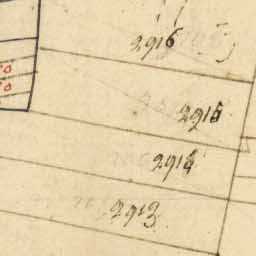 2916
2915
2914
2913